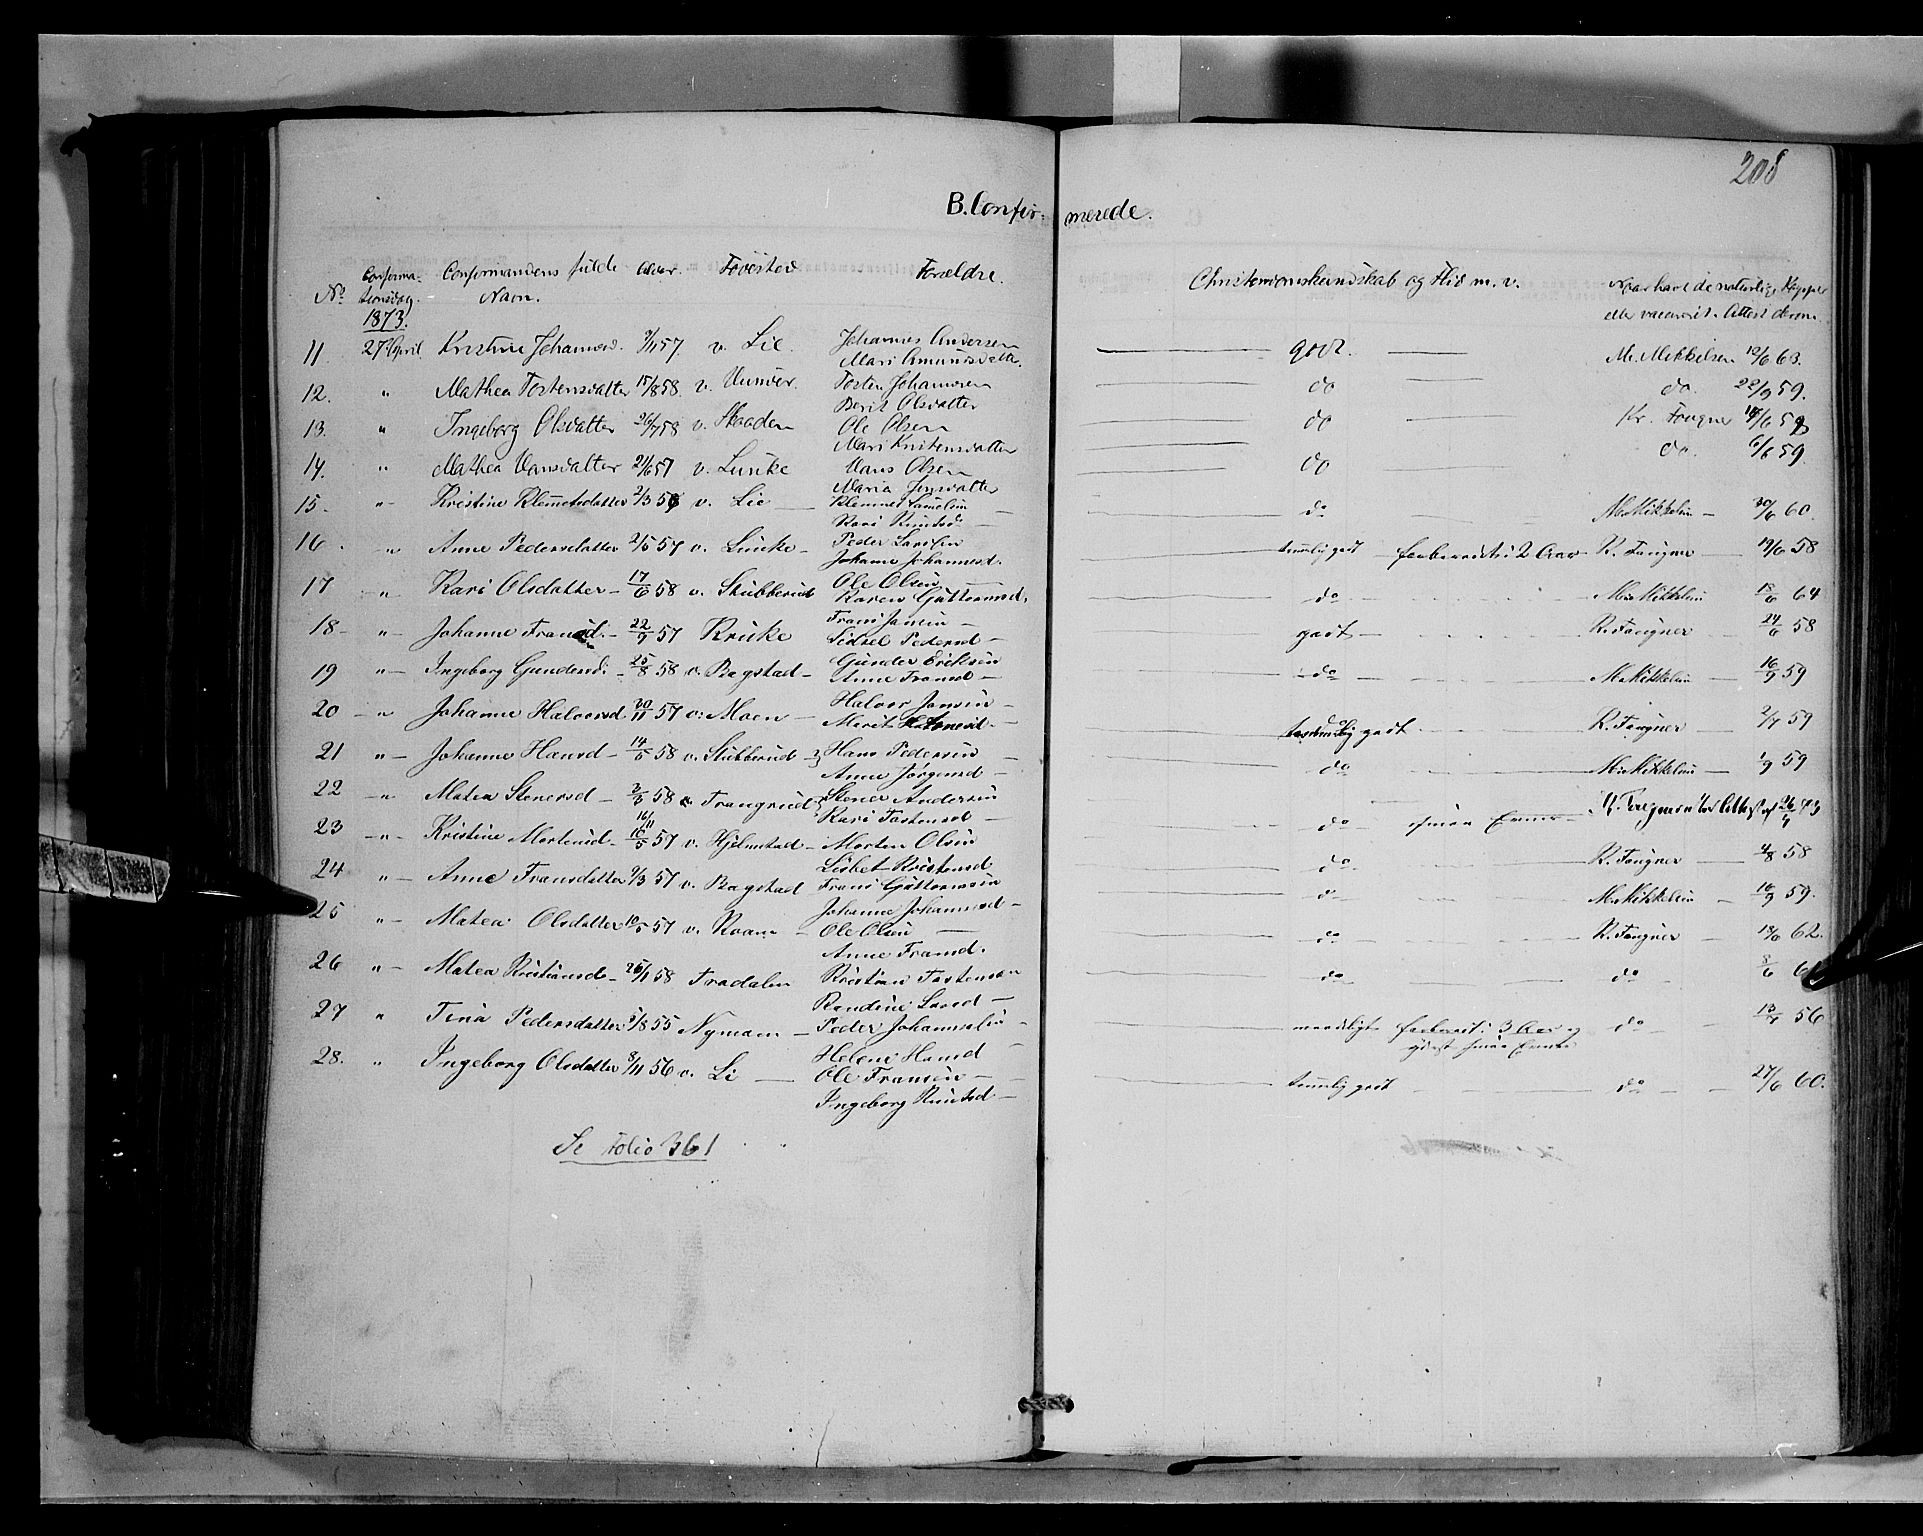 208
B. Confir- merede.
No Confirma- tionsdag. Confirmandens fulde Navn. Alder. Fødested Forældre. Christendomskundskab og Flid m. v. Naar havt de naturlige Kopper eller vaccineret. Attest derom.
1873.
11. 27de April Kristine Johannesd. 3/11 57 v. Lie. Johannes Andersen godt. M. Mikkelsen 12/6 63.
Mari Amundsdatter.
12. " Mathea Tostensdatter 15/8 58 v. Tosten Johannesen do do. 22/9 59.
Berit Olsdatter
13. " Ingeborg Olsdatter 26/7 58 v. Skaaden Ole Olsen do Kr. Fougner 59
Mari Kristensdatter
14. " Mathea Hansdatter 21/6 57 v. Lunke Hans Olsen do do. 6/6 59.
Maria Jensdatter
15. " Kristine Klemmetsdatter 2/3 58 v. Lie Klemmet Samuelsen do M. Mikkelsen 30/6 60.
Kari Knutsd.
16. " Anne Pedersdatter 2/5 57 v. Lunke Peder Larsen temmelig godt forberedt i 2 Aar K. Fougner 19/6 58
Johanne Johannesd.
17 " Kari Olsdatter 17/6 58 v. Stubberud Ole Olsen do M. Mikkelsen 18/6 64
Karen Guttormsd.
18 " Johanne Fransd. 22/9 57 Kruke Frans Jansen godt K. Fougner 24/6 58
Sidsel Pedersd
19 " Ingeborg Gundersd. 25/8 58 v. Bagstad Gunder Eriksen do M. Mikkelsen 16/9 59
Anne Fransd
20 " Johanne Halvorsd 30/11 57 v. Moen Halvor Jansen temmelig godt K. Fougner 2/7 59
Marit
21 " Johanne Hansd 14/5 58 v. Stubberud Hans Pedersen do M. Mikkelsen 1/9 59
Anne Jörgensd
22 " Matea Stenersd 3/3 58 v. Frangrud Stener Andersen do smaa Evner K. Fougner Attest af 26/4 73
Kari Tostensd
23 " Kristine Mortensd 16/11 16/5 57 v. Hjelmstad Morten Olsen do K. Fougner 4/8 58
Lisbet Kristensd
24 " Anne Fransdatter 9/3 57 v. Bagstad Frans Guttormsen do M. Mikkelsen 16/9 59.
Johanne Johannesd
25 " Matea Olsdatter 10/5 57 v. Roam Ole Olsen do K. Fougner 18/6 62.
Anne Fransd.
26 " Matea Kristiansd 26/1 58 Fradalen Kristian Tostensen do do 8/6
Randine Larsd
27 " Tina Pedersdatter 5/8 55 Nymoen Peder Johannesen maadeligt forberedt i 3 Aar og do 13/7 56
yderst smaa Evner
Helene Hansd
28. " Ingeborg Olsdatter 8/11 56 v. Li Ole Fransen temmelig godt do 27/6 60.
Ingeborg Knutsd
Se Folio 361